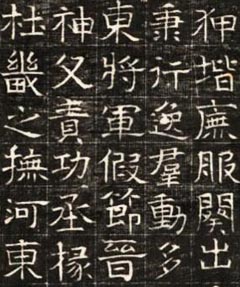 狎服出
秉行逸羣動多
東將軍假節晉
神父責功丞掾
杜畿之撫河東